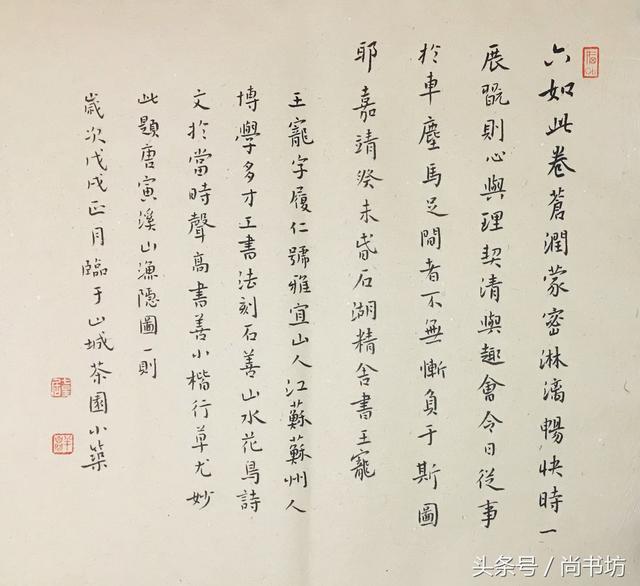 六如此卷蒼潤蒙密淋漓暢快時一
展翫則心與理契清與趣會今日從事
於車塵馬足間者不無慚負于斯圖
耶嘉靖癸未昏石湖精舍書王寵
王寵字履仁號雅宜山人江蘇蘇州人
博學多才工書法刻石善山水花鳥詩
文於當時聲高書善小楷行草尤妙
此題唐寅溪山漁隱圖一則
歲次戊戌正月臨于山城茶園小築
头条号/尚书坊